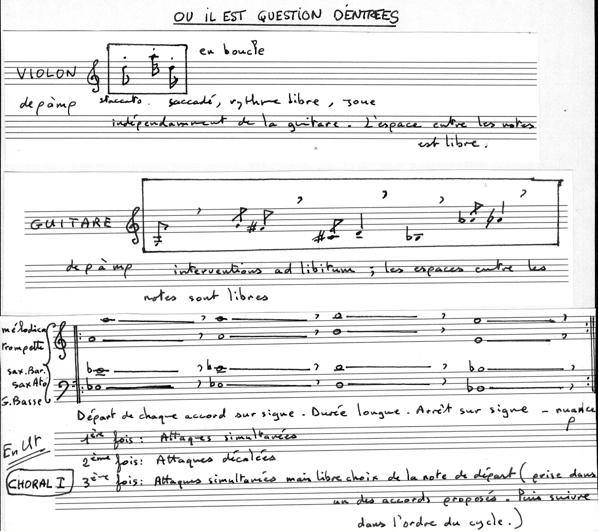 OU IL EST QUESTION D'ENTREES
en boucle
VIOLON
de p à mp staccato. saccadé, rythme libre, joue
indépendamment de la guitare. L'espace entre les notes
est libre.
GUITARE
de p à mp interventions ad libitum ; les espaces entre les
notes sont libres
mélodica
trompette
sax. Bar.
sax Alto
G. Basse
Départ de chaque accord sur signe. Durée longue. Arrêt sur signe - nuance
p
En Ut
1ère fois : Attaques simultanées
2ème fois : Attaques décalées
CHORAL I
3ème fois : Attaques simultanées mais libre choix de la note de départ ( prise dans
un des accords proposés. Puis suivre
dans l'ordre du cycle.)